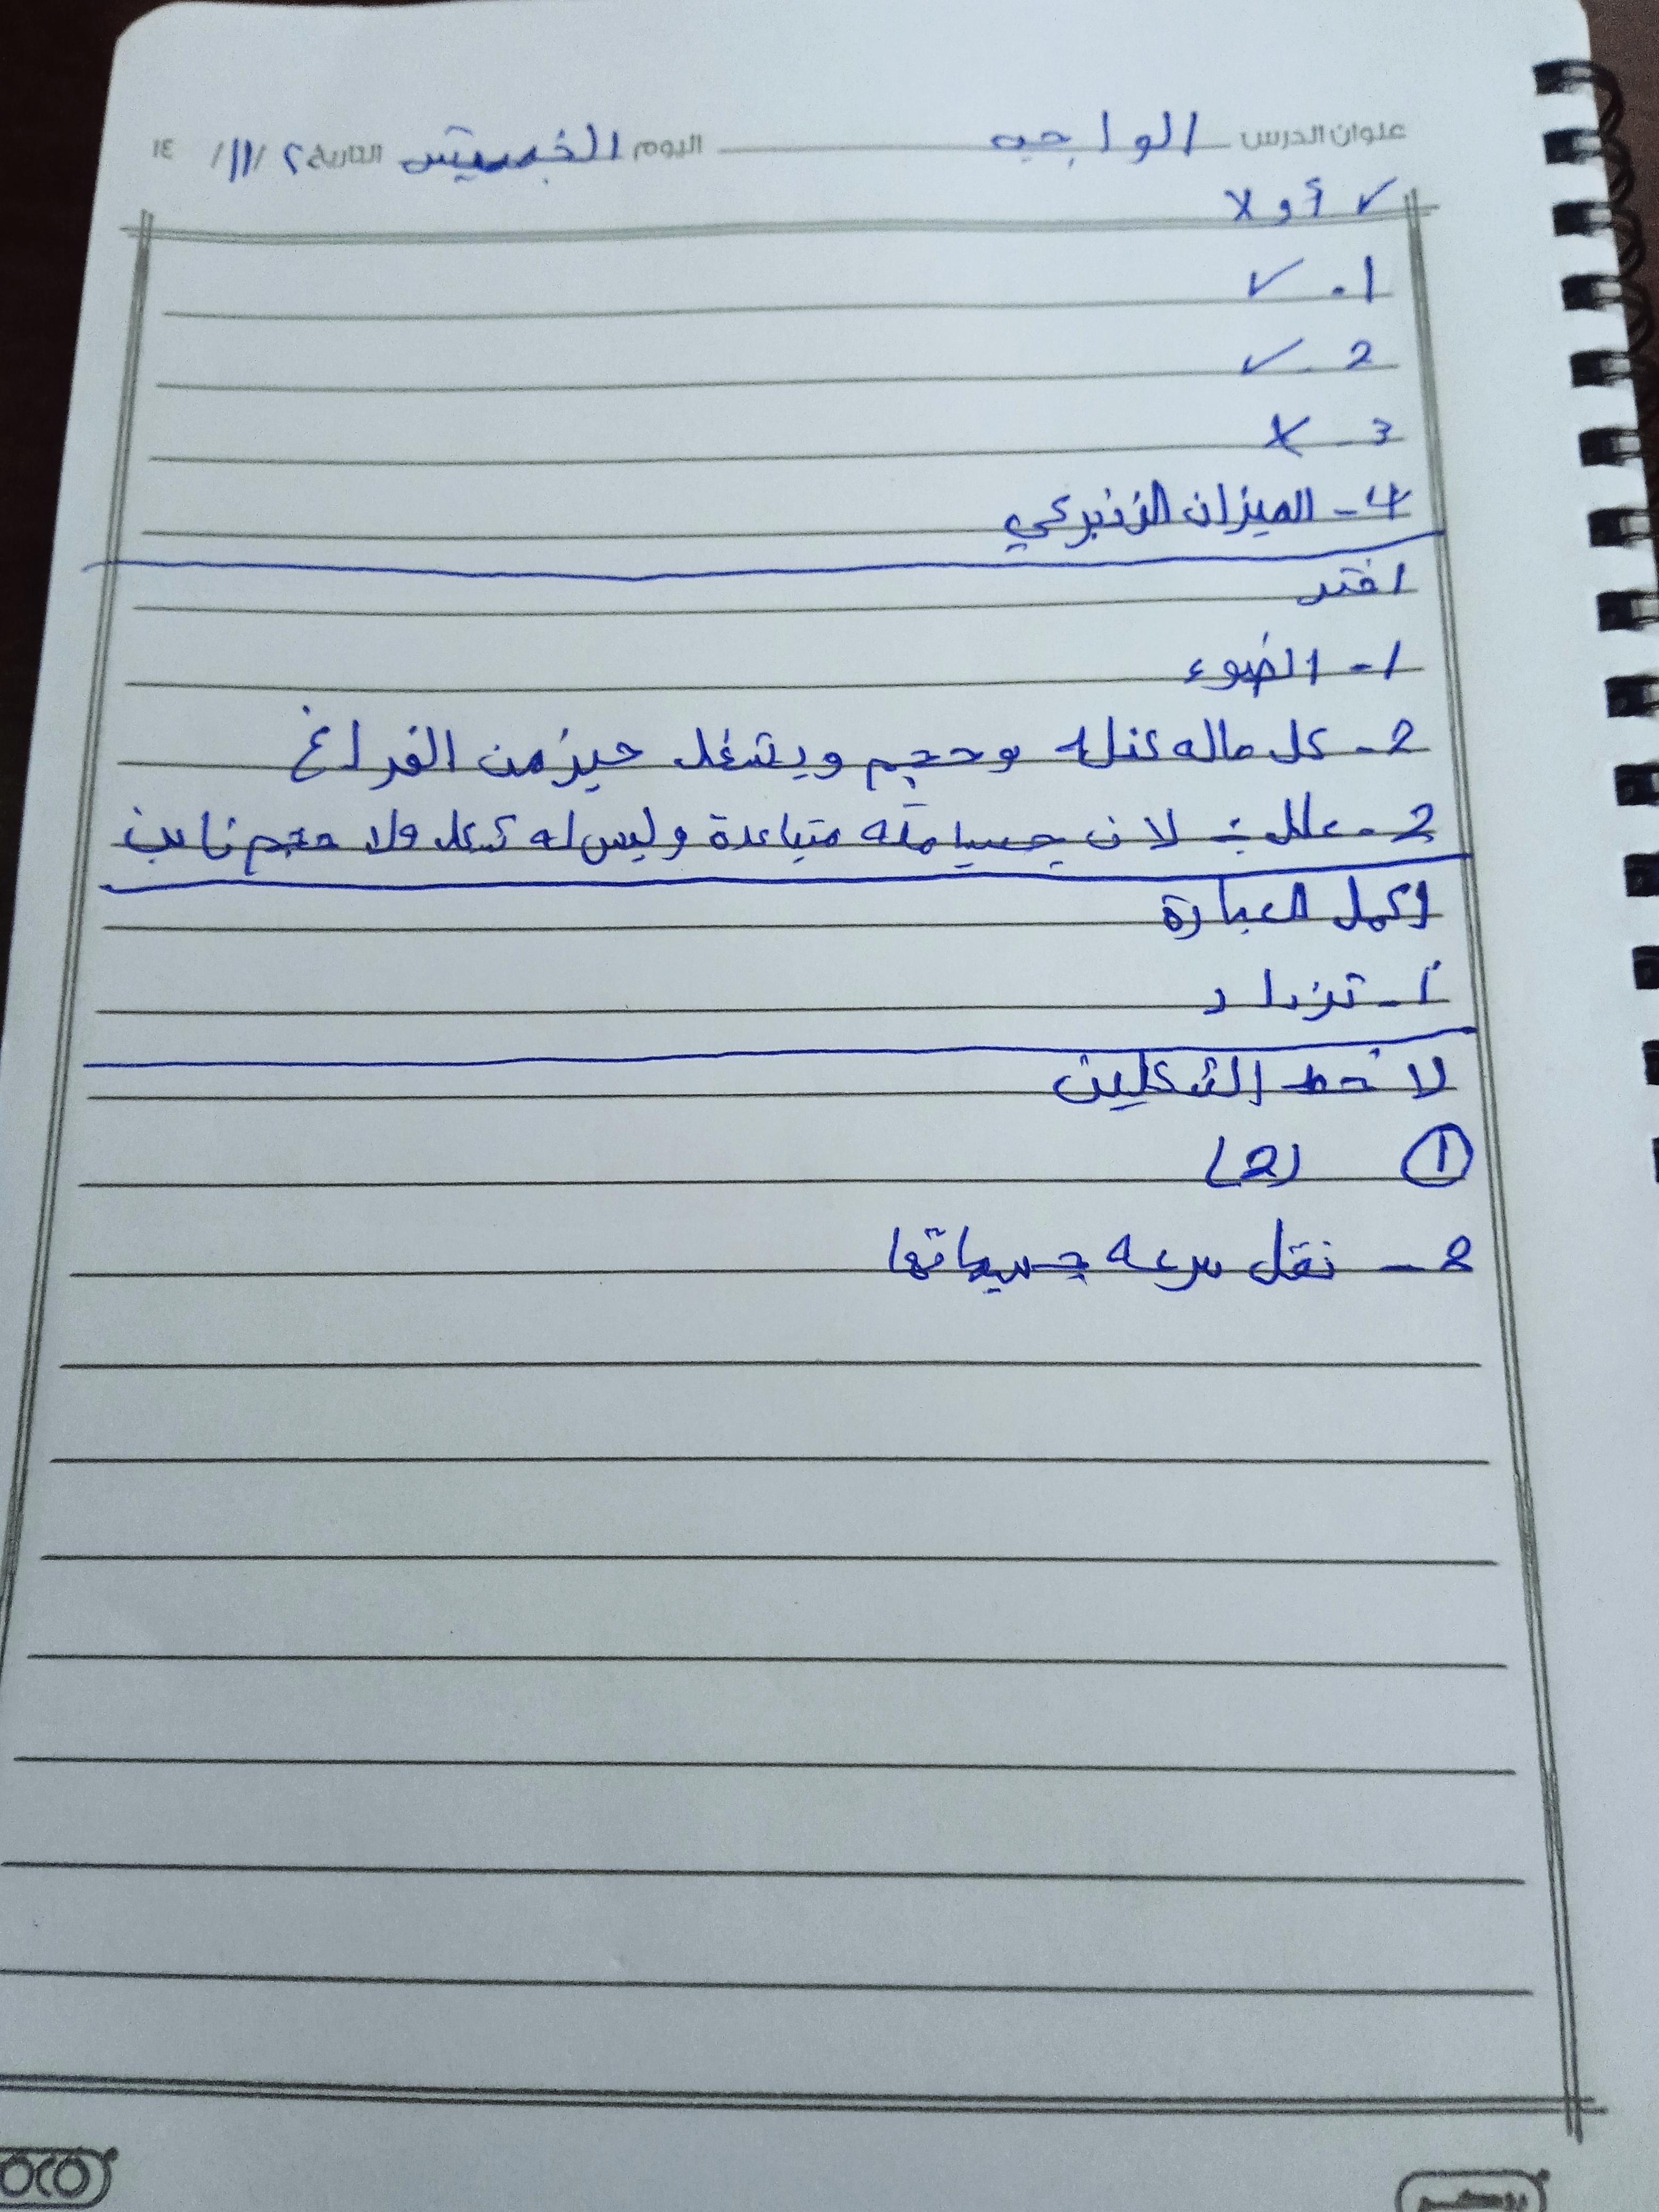 علوان الدرس الواجب اليوم الخميس التاريخ ٢ / ١١ / ١٤
✓ أولا
1 - ✓
2 - ✓
3 - ×
4 - الميزان الزنبركي
اختر
1 - الضوء
2 - كل ماله كتله وحجم ويشغل حيز من الفراغ
2 - علل : لان جسيماته متباعدة وليس له شكل ولا حجم ثابت
اكمل العبارة
1 - تزداد
لاحظ الشكلين
① (2)
2 - نقل سرعه جسيماتها
روكو